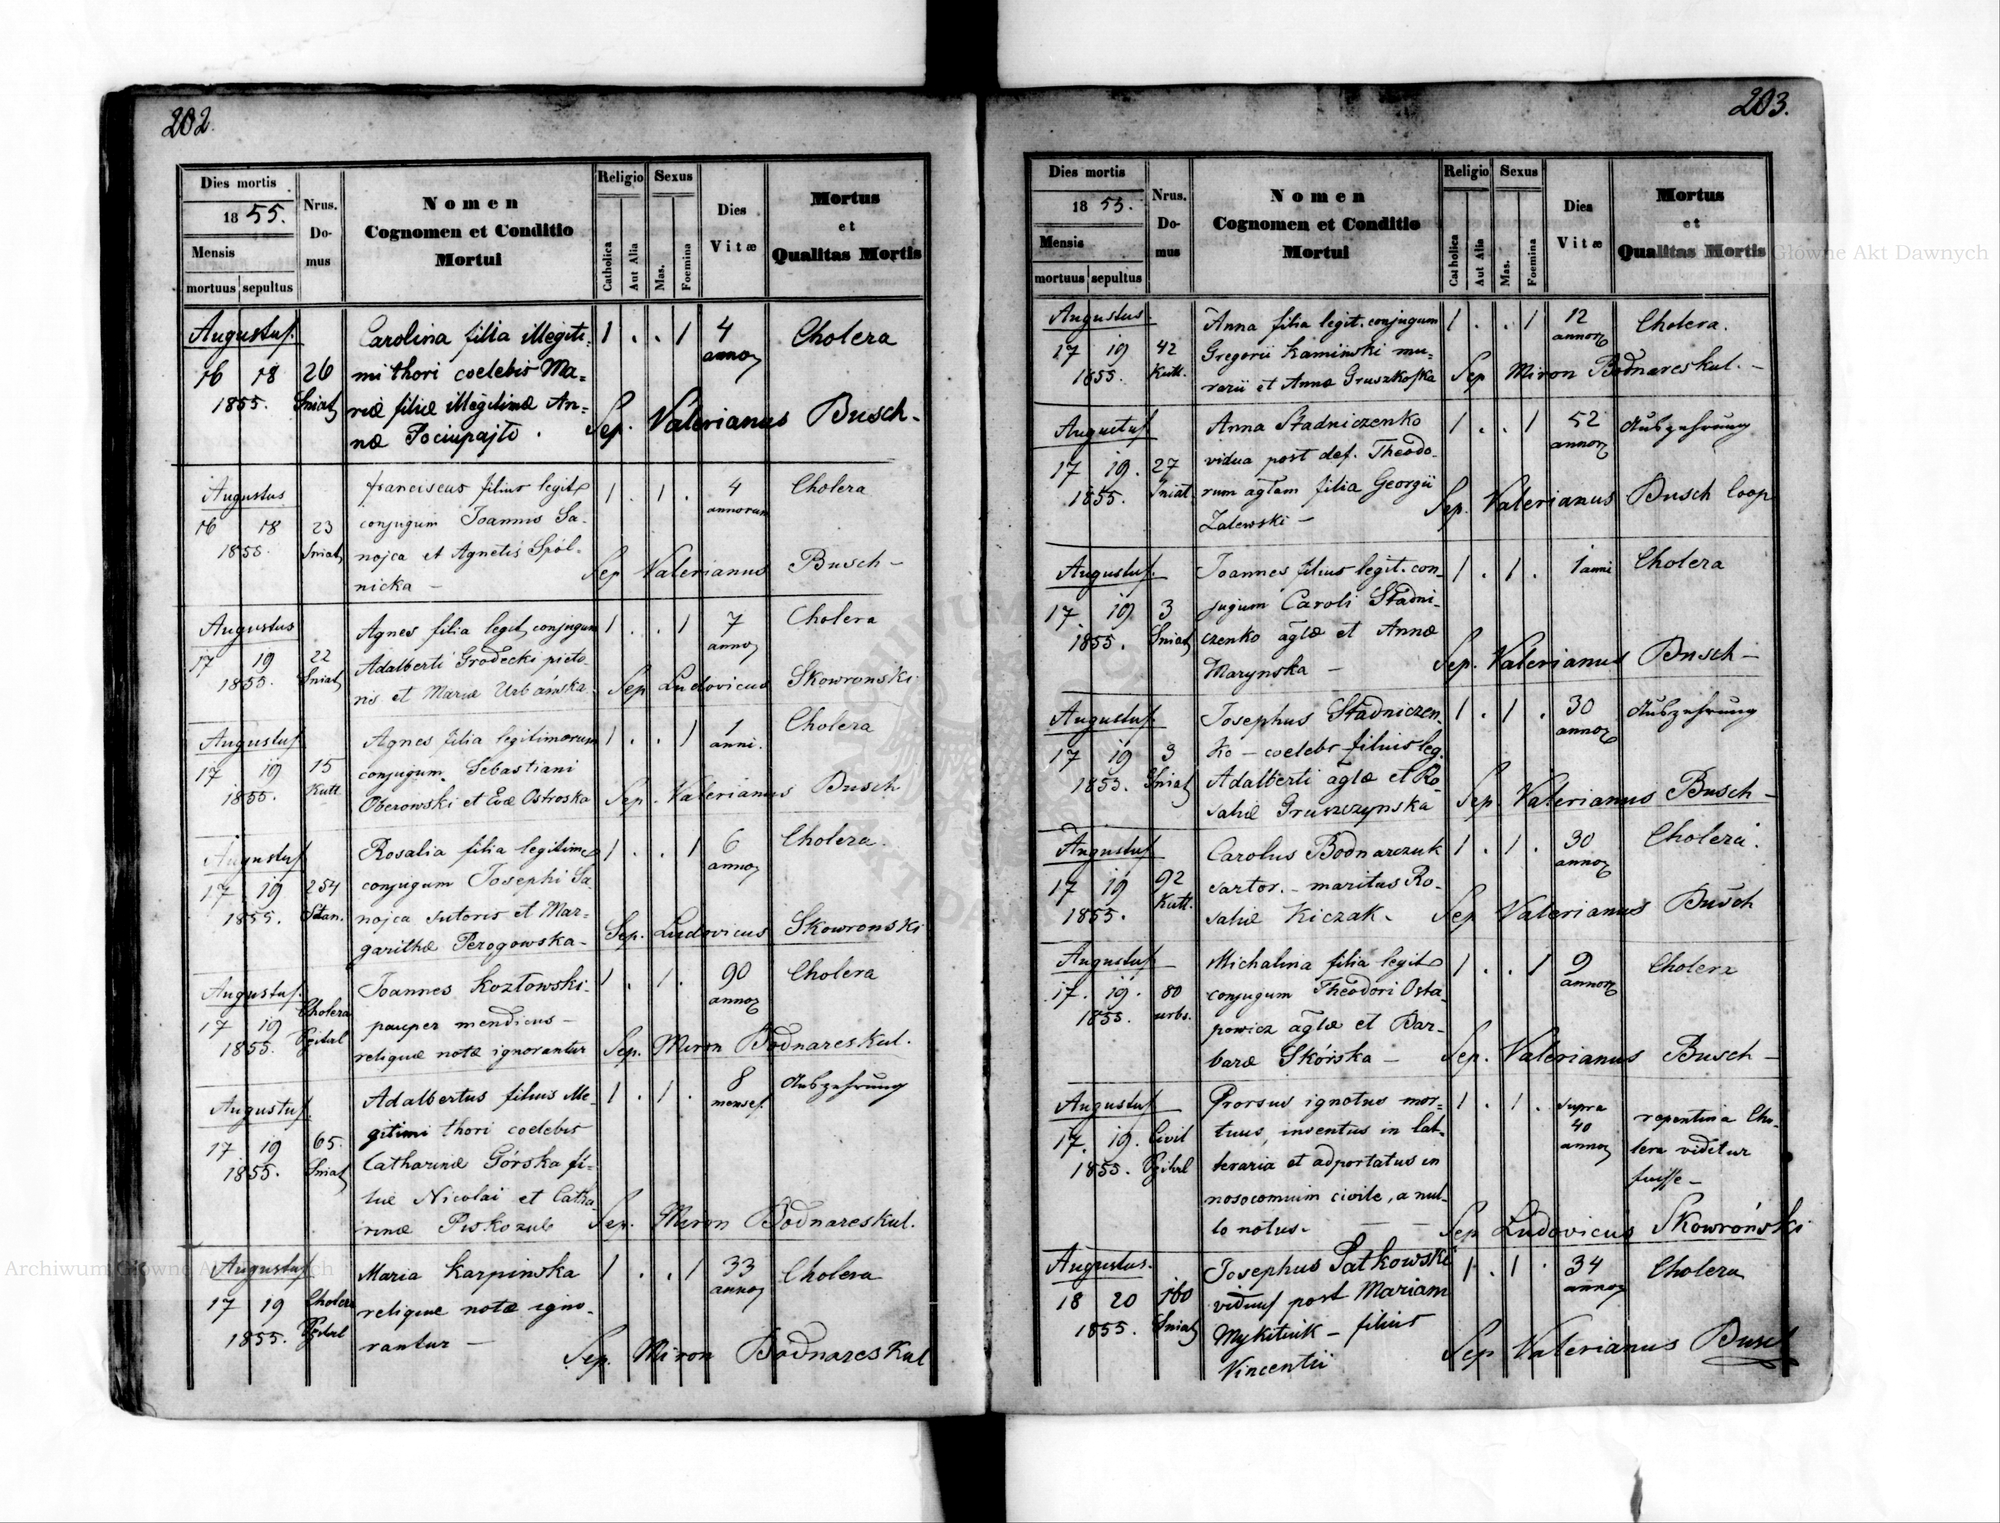 202.
Dies mortis
1855.
Mensis
mortuus sepultus
Nrus.
Do-
mus
Nomen
Cognomen et Conditio
Mortui
Religio
Catholica
Aut Alia
Sexus
Mas.
Foemina
Dies
Vitæ
Mortus
et
Qualitas Mortis
Augustus.
16 18 26
1855. Sniat
Carolina filia illegiti-
mi thori coelebis Ma-
riæ filiæ illegitimæ An-
næ Pociupajto.
1 . . 1 4 Cholera
annor
Sep. Valerianus Busch-
Augustus
16 18 23
1855. Sniat
Franciscus filius legit
conjugum Joannis Sa-
nojca et Agnetis Spól-
nicka -
1 . 1 . 4 Cholera
annorum
Sep Valerianus Busch-
Augustus
17 19 22
1855. Sniat
Agnes filia legit conjugum
Adalberti Grodecki picto-
ris et Mariæ Urbańska
1 . . 1 7 Cholera
annor
Sep Ludovicus Skowronski
Augustus
17 19 15
1855. Kutt
Agnes filia legitimorum
conjugum Sebastiani
Oberowski et Evæ Ostroska
1 . . 1 1 Cholera
anni.
Sep. Valerianus Busch
Augustus
17 19 254
1855. Stan.
Rosalia filia legitim
conjugum Josephi Sa-
nojca sutoris et Mar-
garithæ Perogowska-
1 . . 1 6 Cholera.
annor
Sep. Ludovicus Skowronski
Augustus. Cholera
17 19 Spital
1855.
Joannes Kozłowski-
pauper mendicus-
reliquæ notæ ignorantur
1 . 1 . 90 Cholera
annor
Sep. Miron Bodnareskul.
Augustus.
17 19 65.
1855. Sniat
Adalbertus filius ille-
gitimi thori coelebis
Catharinæ Górska fi-
liæ Nicolai et Catha-
rinæ Piskozub
1 . 1 . 8 Auszehrung
menses.
Sep. Miron Bodnareskul.
Augustus
17 19 Cholera
1855. Spital
Maria Karpinska
reliquæ notæ igno-
rantur -
1 . . 1 33 Cholera
annor
Sep. Miron Bodnareskul
203.
Dies mortis
1855.
Mensis
mortuus sepultus
Nrus.
Do-
mus
Nomen
Cognomen et Conditio
Mortui
Religio
Catholica
Aut Alia
Sexus
Mas.
Foemina
Dies
Vitæ
Mortus
et
Qualitas Mortis
Augustus.
17 19 42
1855. Kutt.
Anna filia legit. conjugum
Gregorii Kamiński mu-
rarii et Annæ Gruszkoska
1 . . 1 12 Cholera.
annor
Sep Miron Bodnareskul.-
Augustus
17 19. 27
1855. Sniat.
Anna Stadniczenko
vidua post def. Theodo-
rum aglam filia Georgii
Zalewski-
1 . . 1 52 Auszehrung
annor
Sep. Valerianus Busch Coop
Augustus.
17 19 3
1855. Sniat
Joannes filius legit. con-
jugum Caroli Stadni-
czenko aglæ et Annæ
Marynska -
1 . 1 . 1 anni Cholera
Sep. Valerianus Busch-
Augustus
17 19 3
1855. Sniat
Josephus Stadniczen-
ko - coelebs filius leg.
Adalberti aglæ et Ro-
saliæ Gruszczynska
1 . 1 . 30 Auszehrung
annor
Sep. Valerianus Busch-
Augustus
17 19 92
1855. Kutt.
Carolus Bodnarczuk
sartor. - maritus Ro-
saliæ Kiczak.
1 . 1 . 30 Cholera.
annor
Sep Valerianus Busch
Augustus
17. 19. 80
1855. urbs.
Michalina filia legit
conjugum Theodori Osta-
powicz aglæ et Bar-
baræ Skórska -
1 . . 1 9 Cholera
annor
Sep. Valerianus Busch-
Augustus
17. 19. Civil
1855. Spital
Prorsus ignotus mor-
tuus, inventus in lat-
teraria et adportatus in
nosocomium civile, a nul-
lo notus.
1 . 1 . supra
40
annor
repentina Cho-
lera videtur
fuisse-
Sep Ludovicus Skowroński
Augustus.
18 20 160
1855. Sniat
Josephus Satkowski
viduus post Mariam
Mykitiuk - filius
Vincentii
1 . 1 . 34 Cholera
annor
Sep Valerianus Busch
Archiwum Główne Akt Dawnych
Główne Akt Dawnych